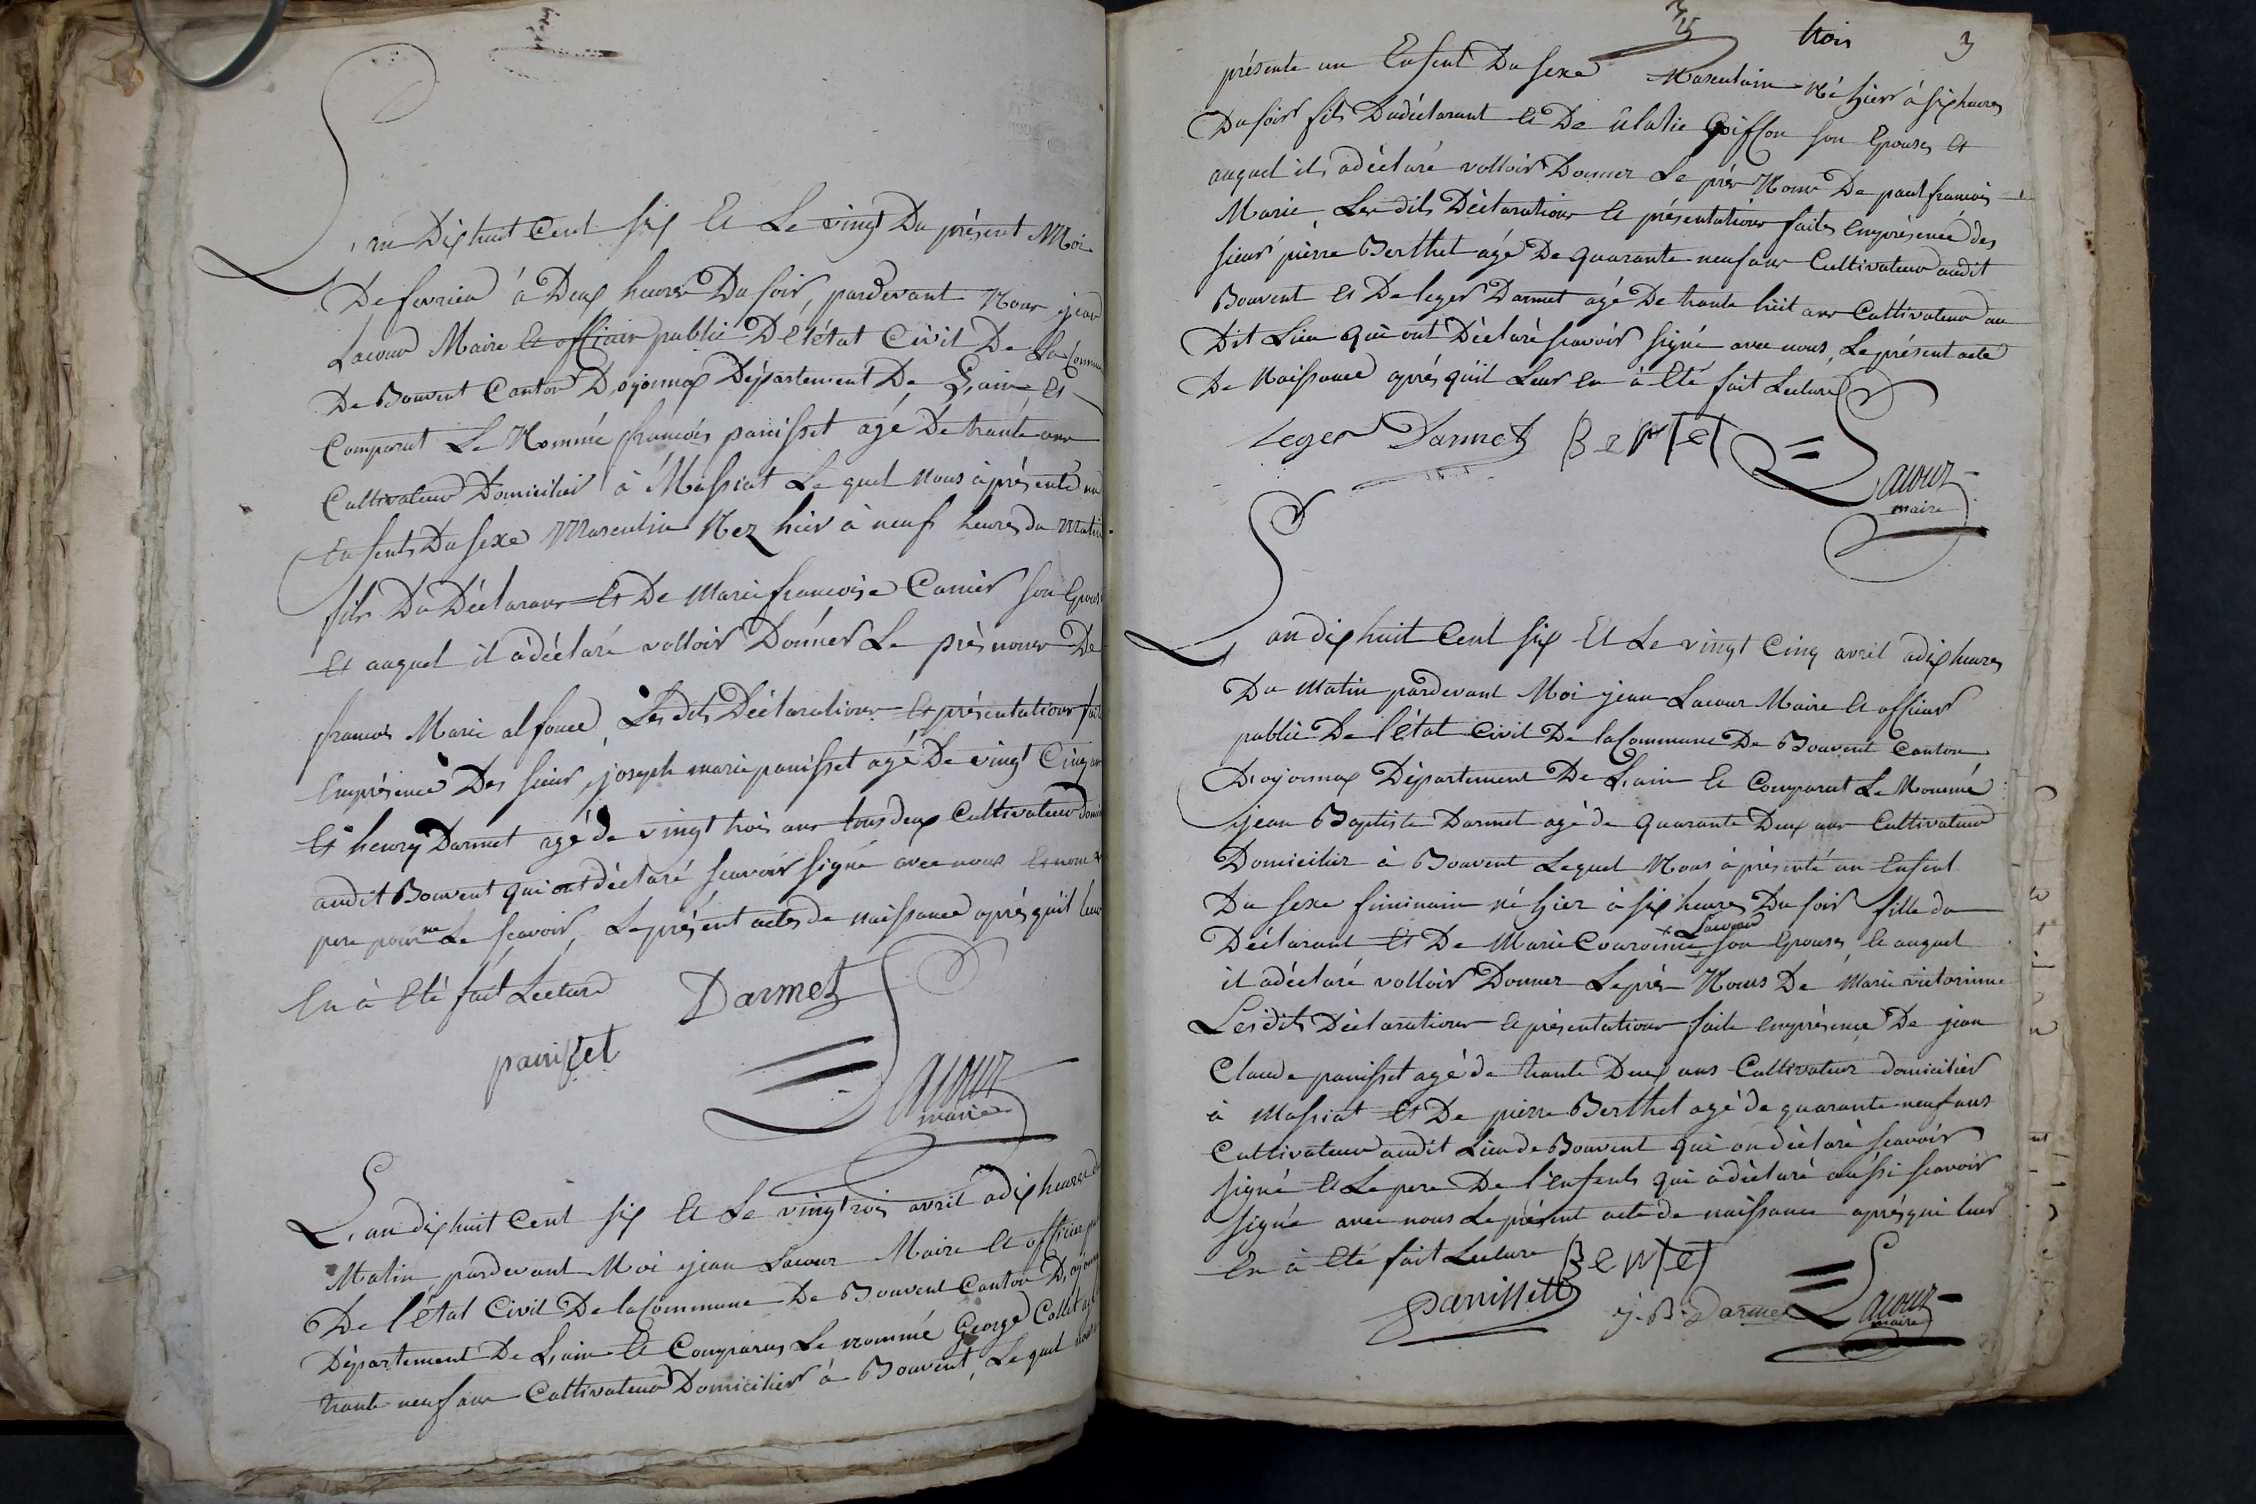 L'an Dix huit Cent six Et Le vingt Du présent Moi
De fevrier à Deux heures Du soir, pardevant Nous jean
Lacour Maire Et officier public De l'état Civil De La Commune
De Bouvent Canton D'oyonnax Département De L'ain, Et
Comparut Le Nommé francois panisset agé De trante ans
Cultivateur Domicilier à Massiat Le quel Nous à présenté un
Enfents Du sexe Masculin Nez hier à neuf heures du Matin
fils Du Déclarans Et De Marie francoise Carrier son Epouse
Et auquel il à déclaré volloir Donner Le prénoms De
francois Marie alfonce, Les dits Déclarations Et présentations faites
Enprésence Des sieur, joseph marie panisset agé De vingt Cinq ans
Et henry Darmet agé de vingt trois ans tous deux Cultivateur Domicilier
audit Bouvent qui ont déclaré scavoir signé avec nous Et non le
pere pour ne Le scavoir, Le présent actes de naissance après quil leur
En à Eté fait Lecture
Darmet
panisset
Lacour
maire
L'an dix huit Cent six Et Le vingt trois avril à dix heures du
Matin, pardevant Moi jean Lacour Maire Et officier public
De l'état Civil De la Commune De Bouvent Canton D'oyonnax
Département De L'ain Et Comparus Le nommé George Collet agé
trante neuf ans Cultivateur Domicilier à Bouvent, Le quel nous à
trois 3
présente un Enfent Du sexe Masculain Né hier à six heures
Du soir fils Du déclarant Et De Ulalie Goiffon son Epouses Et
auquel ils à déclaré volloir Donner Le pré Noms De paul francois
Marie, Les dits Déclarations Et présentations faites Enprésence des
sieur pierre Berthet agé De quarante neuf ans Cultivateur audit
Bouvent Et De leger Darmet agé De trante huit ans Cultivateur au
Dit Lieu qui ont Déclaré scavoir signé avec nous, Le présent acte
De Naissance après quil Leur En à Eté fait Lecture
Leger Darmet Bertet
Lacour
maire
L'an dix huit Cent six Et Le vingt Cinq avril à dix heures
Du Matin pardevant Moi jean Lacour Maire Et officier
public De l'état Civil De la Commune De Bouvent Canton
D'oyonnax Département De L'ain Et Comparut Le Nommé
jean Baptiste Darmet agé de quarante Deux ans Cultivateur
Domicilier à Bouvent Lequel Nous à présenté un Enfent
Du sexe fiminain né hier à six heures Du soir fille du
Lacour
Déclarant Et De Marie Couroisine son Epouses, Et auquel
il à déclaré volloir Donner Le pré Noms De Marie victorinne
Les dits Déclarations Et présentations faite Enprésence De jean
Claude panisset agé de trante Deux ans Cultivateur domicilier
à Massiat Et De pierre Berthet agé de quarante neuf ans
Cultivateur audit Lieu de Bouvent qui on déclaré scavoir
signé Et Le pere De l'enfents qui à déclaré aussi scavoir
signée avec nous Le présent acte de naissance après qui leur
En à Eté fait Lecture Bertet
panissett j. B. Darmet Lacour
maire